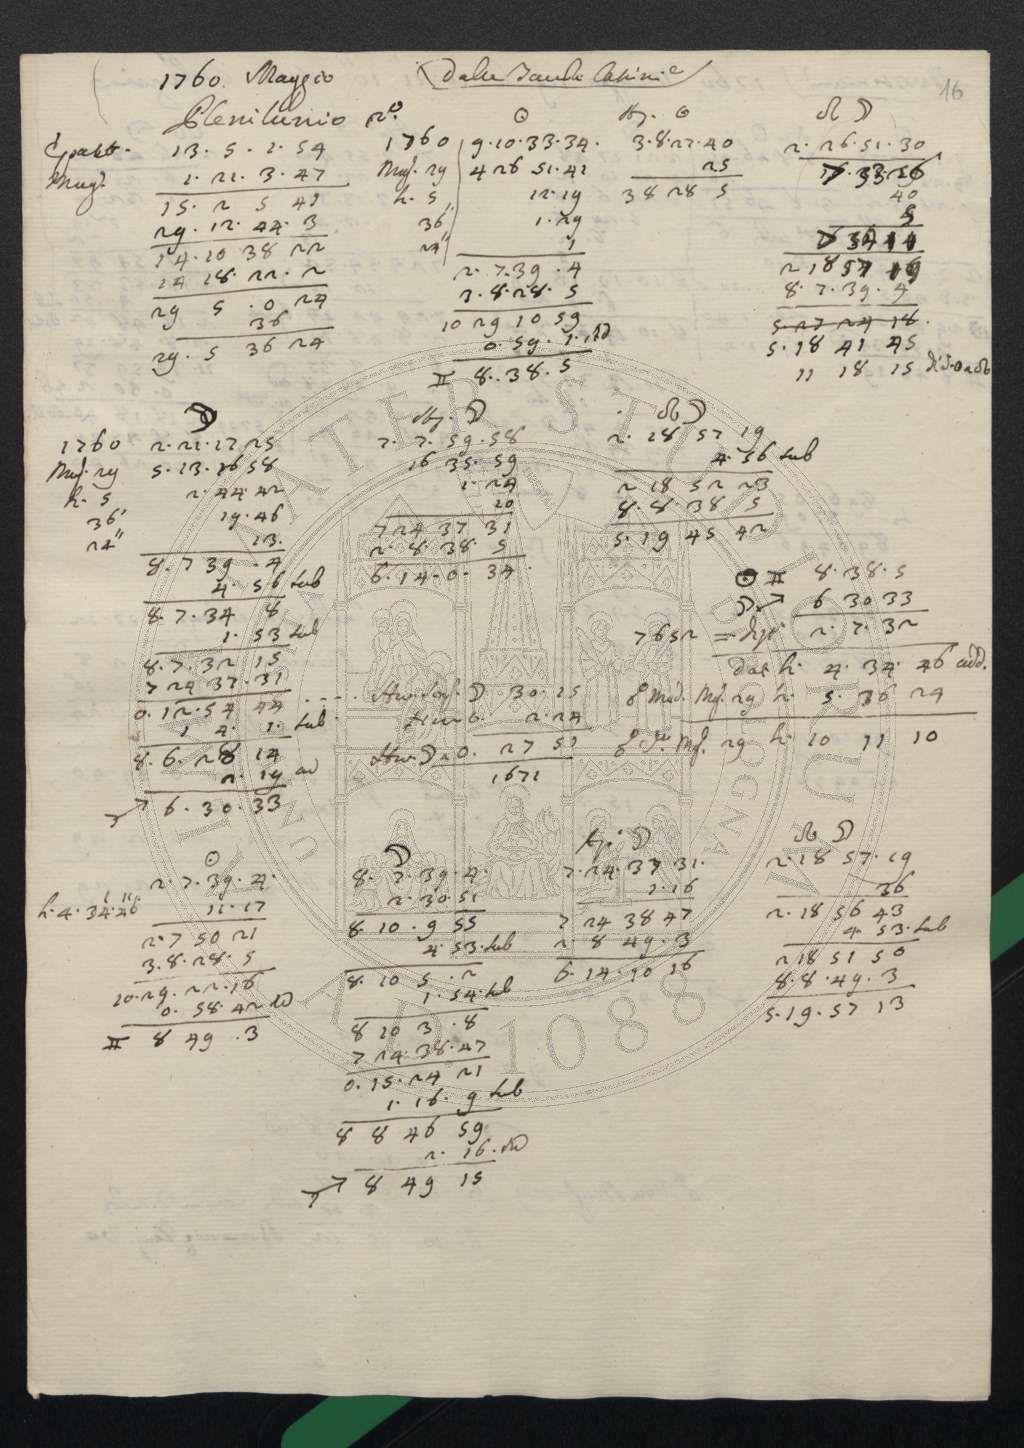 1760. Maggio
Plenilunio
16
Epatt. 13. 5. 2. 54
Magg. 1. 21. 3. 47
15. 2 5 41
29. 12. 44. 3
14. 10 38 22
14 18. 22. 2
29 5 . 0 24
36
29. 5 36 24
☉
1760 9. 10. 33. 34.
Mag. 29 4 26 51. 41
h. 5 12. 19
36' 1. 29
24" 1
2. 7. 39. 4
3. 8. 28. 5
10 29 10 59
0. 59. 1.
♊ 8. 38. 5
Ap. ☉
3. 8. 27. 40
25
3 8 28 5
☊ ☽
2. 26. 51. 30
40
5
2 18 57 19
8. 7. 39. 4
5. 27 24 18.
5. 18 41 45
11 18 15
☽
1760 2. 21. 17 25
Mag. 29 5. 13. 26 58
h. 5 2. 44. 42
36' 19. 46
24" 13.
8. 7 39 . 4
4. 56 sub
8. 7. 34 8
1. 53 sub
8. 7. 32 15
7 24 37. 31
0. 12. 54 44
1 4. 1. sub
8. 6. 28 14
2. 19 ad
♐ 6. 30. 33
Ap. ☽
7. 7. 59. 58
16 35. 59
1. 24
10
7 24 37 31
2. 8. 38. 5
6. 14. 0. 34.
☊ ☽
2. 18 57 19
4. 56 sub
2 18 52 23
8. 8. 38 5
5. 19 45 42
☉ ♊ 8. 38. 5
☽ ♐ 6 30 33
7652 = 2. 7. 32
dat h. 4. 34. 46 add.
Mag. 29 h. 5. 36 24
Mag. 29 h. 10 11 10
☽ 30. 15
2. 24
☽ 0. 27 51
1671
☉
2. 7. 39. 4.
h. 4. 34. 46 11. 17
2. 7 50 21
3. 8. 28. 5
10. 29. 22. 16
0. 58. 42
♊ 8 49 . 3
☽
8. 7. 39. 4.
2. 30. 51
8. 10 . 9 55
4. 53. sub
8. 10 5 . 2
1. 54. sub
8 10 3 . 8
7 24. 38. 47
0. 15. 24 21
1. 16. 9 sub
8 8 46 59
2. 16.
♐ 8 49 15
Ap. ☽
7. 24. 37 31.
1. 16
7 24 38 47
2 8 49. 3
6. 14. 10 16
☊ ☽
2. 18 57. 19
36
2. 18 56 43
4. 53. sub
2 18 51 50
8. 8. 49. 3
5. 19. 57 13
ALMA MATER STUDIORUM
A.D. 1088